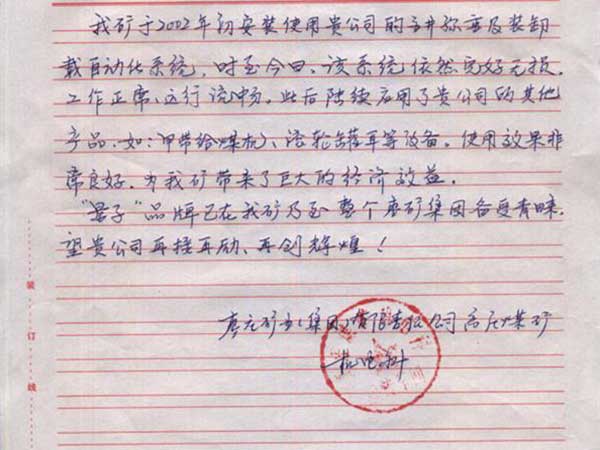 我矿于2002年初安装使用贵公司的主井称重及装卸
载自动化系统，时至今日、该系统依然完好无损，
工作正常、运行流畅。此后陆续启用了贵公司的其他
产品、如：甲带给煤机、滚轮罐耳等设备。使用效果非
常良好、为我矿带来了巨大的经济效益。
"量子"品牌已在我矿乃至整个枣矿集团备受青睐，
望贵公司再接再励、再创辉煌！
枣庄矿业(集团)有限责任公司高庄煤矿
机电科
装
订
线